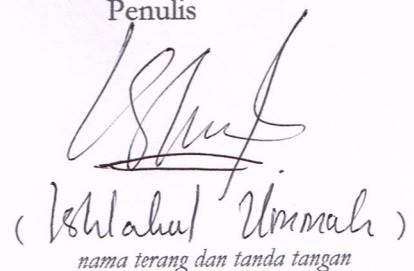 Penulis
( Ishlahul Ummah )
nama terang dan tanda tangan